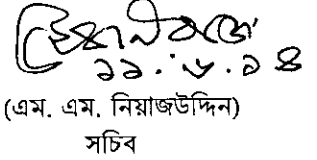 ১১.৮.১৪
(এম. এম. নিয়াজউদ্দিন)
সচিব